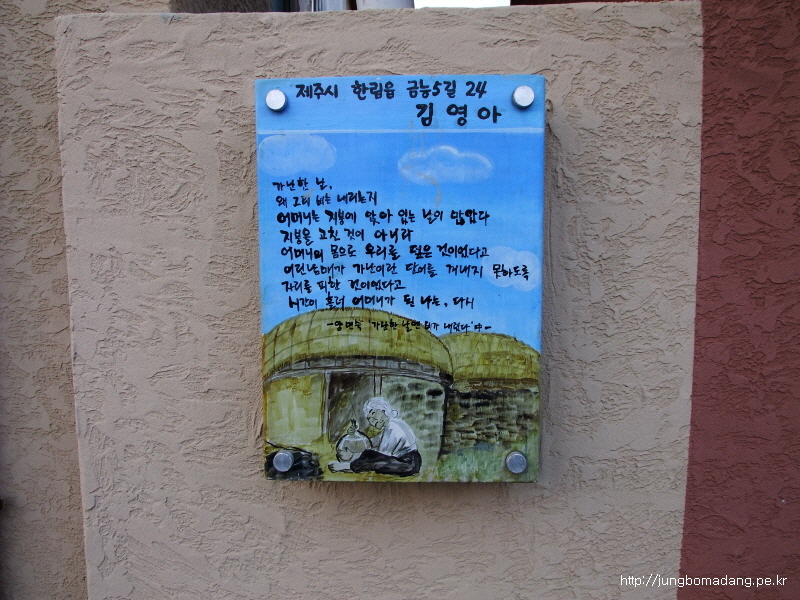 제주시 한림읍 금능5길 24
김영아
가난한 날,
왜 그리 비는 내리는지
어머니는 지붕에 앉아 있는 날이 많았다
지붕을 고친 것이 아니라
어머니의 몸으로 우리를 덮은 것이었다고
어린 남매가 가난이란 단어를 꺼내지 못하도록
자리를 피한 것이었다고
시간이 흘러 어머니가 된 나는, 다시
'가난한 날엔 비가 내렸다' 中 -
http://jungbomadang.pe.kr